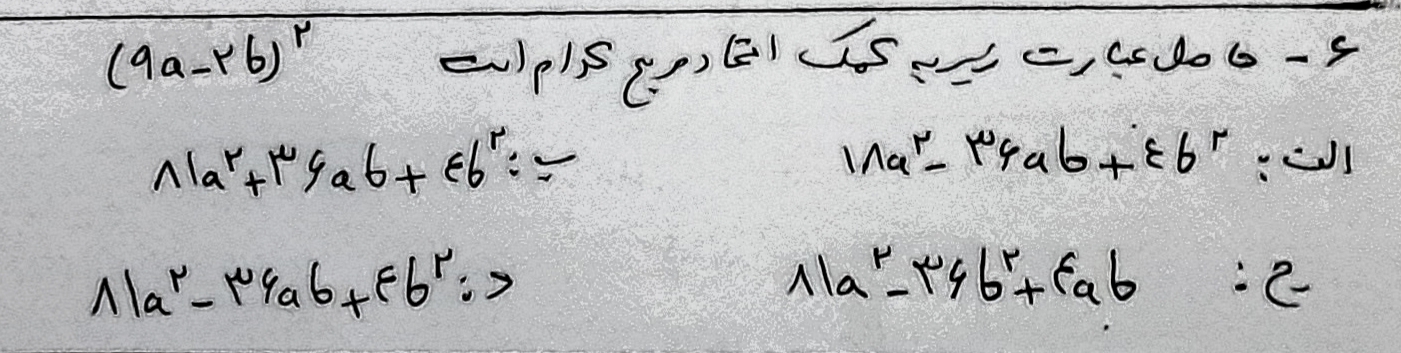 ۶ - حاصل عبارت زیر به کمک اتحاد مربع کدام است (۹a-۲b)^۲
الف: ۱۸a^۲ - ۳۶ab + ٤b^۲ ب: ۸۱a^۲ + ۳۶ab + ٤b^۲
ج: ۸۱a^۲ - ۳۶b^۲ + ۴ab د: ۸۱a^۲ - ۳۶ab + ۴b^۲